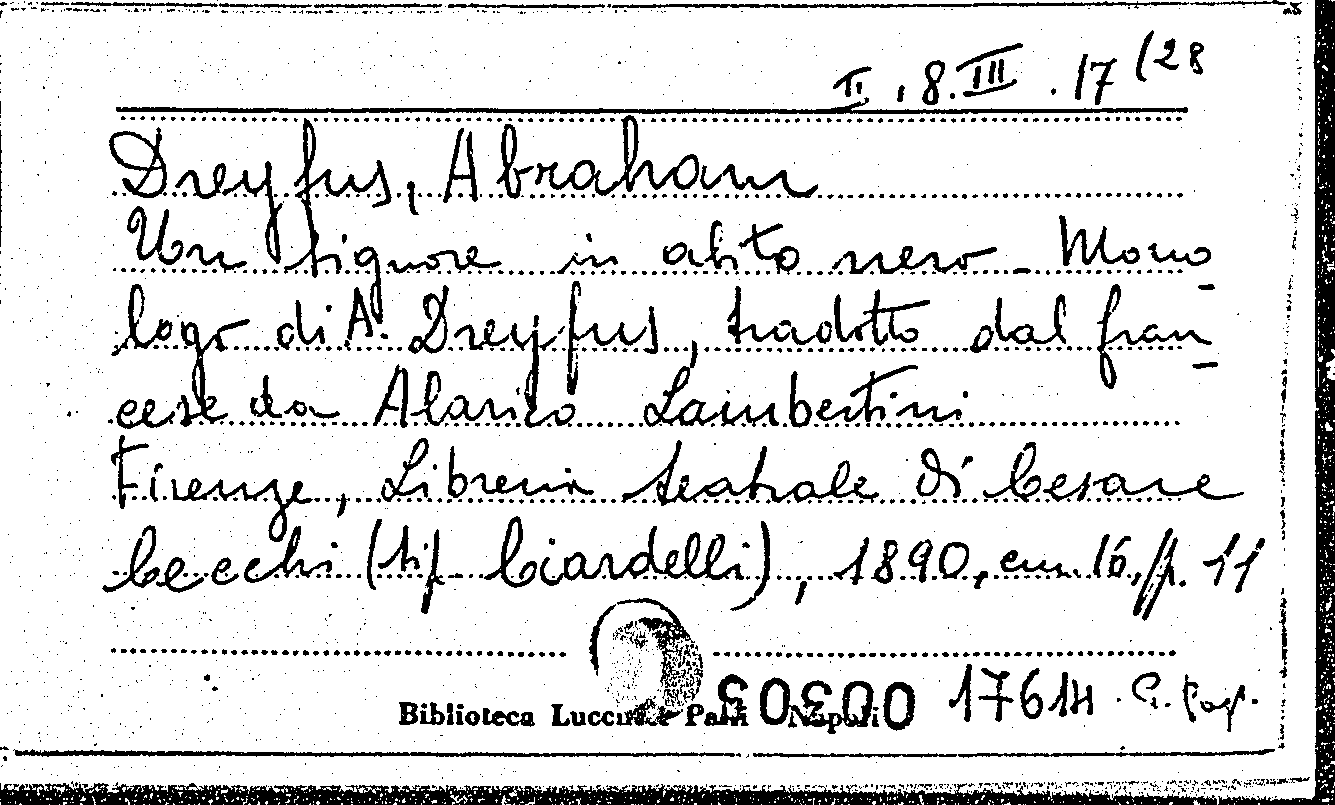 II. 8. III. 17 (28
Dreyfus, Abraham
Un signore in abito nero - Mono-
logo di A. Dreyfus, tradotto dal fran-
cese da Alarico Lambertini
Firenze, Libreria teatrale di Cesare
Cecchi (tip. Ciardelli), 1890, cm. 16, pp. 11
Biblioteca Napoli
17614